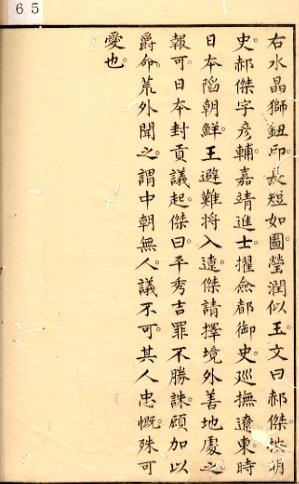 65
右水晶獅鈕印。長短如圖。瑩潤似玉。文曰郝傑。按明
史郝傑字彥輔。嘉靖進士。擢僉都御史。巡撫遼東。時
日本陷朝鮮。王避難將入遼。傑請擇境外善地處之。
報可。日本封貢議起。傑曰。平秀吉罪不勝誅。顧加以
爵命。荒外聞之。謂中朝無人。議不可。其人忠慨。殊可
愛也。